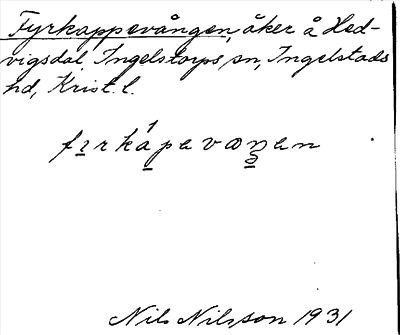 Fyrkappevången, åker å Hed-
vigsdal, Ingelstorps sn, Ingelstads
hd, Krist. l.
Nils Nilsson 1931